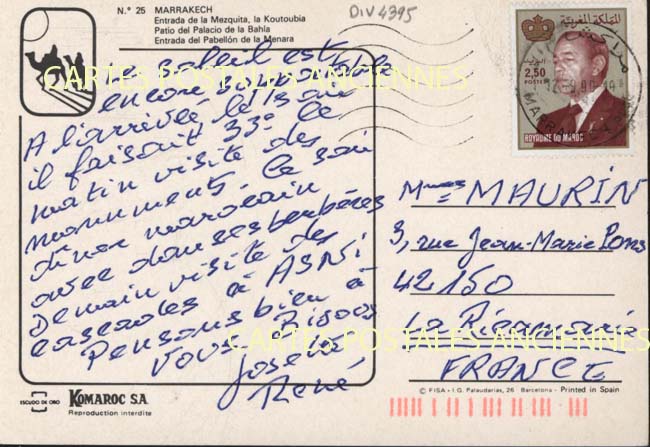 N.° 25 MARRAKECH
Entrada de la Mezquita, la Koutoubia
Patio del Palacio de la Bahia
Entrada del Pabellón de la Menara
DIV 4395
المملكة المغربية
البريد
2,50
POSTES
ROYAUME DU MAROC
Le soleil est
encore
A l'arrivée le 13 au
il faisait 33° le
matin visite des
monuments. Ce soir
diner marocain
avec danses berbères
Demain visite des
cascades à ASNI
Pensons bien à
vous Bisous
Josette
René
Mmes MAURIN
3, rue Jean-Marie Pons
42150
La Ricamarie
FRANCE
CARTES POSTALES ANCIENNES
CARTES POSTALES ANCIENNES
ESCUDO DE ORO
KOMAROC S.A.
Reproduction interdite
© FISA - I.G. Palaudarias, 26 Barcelona - Printed in Spain